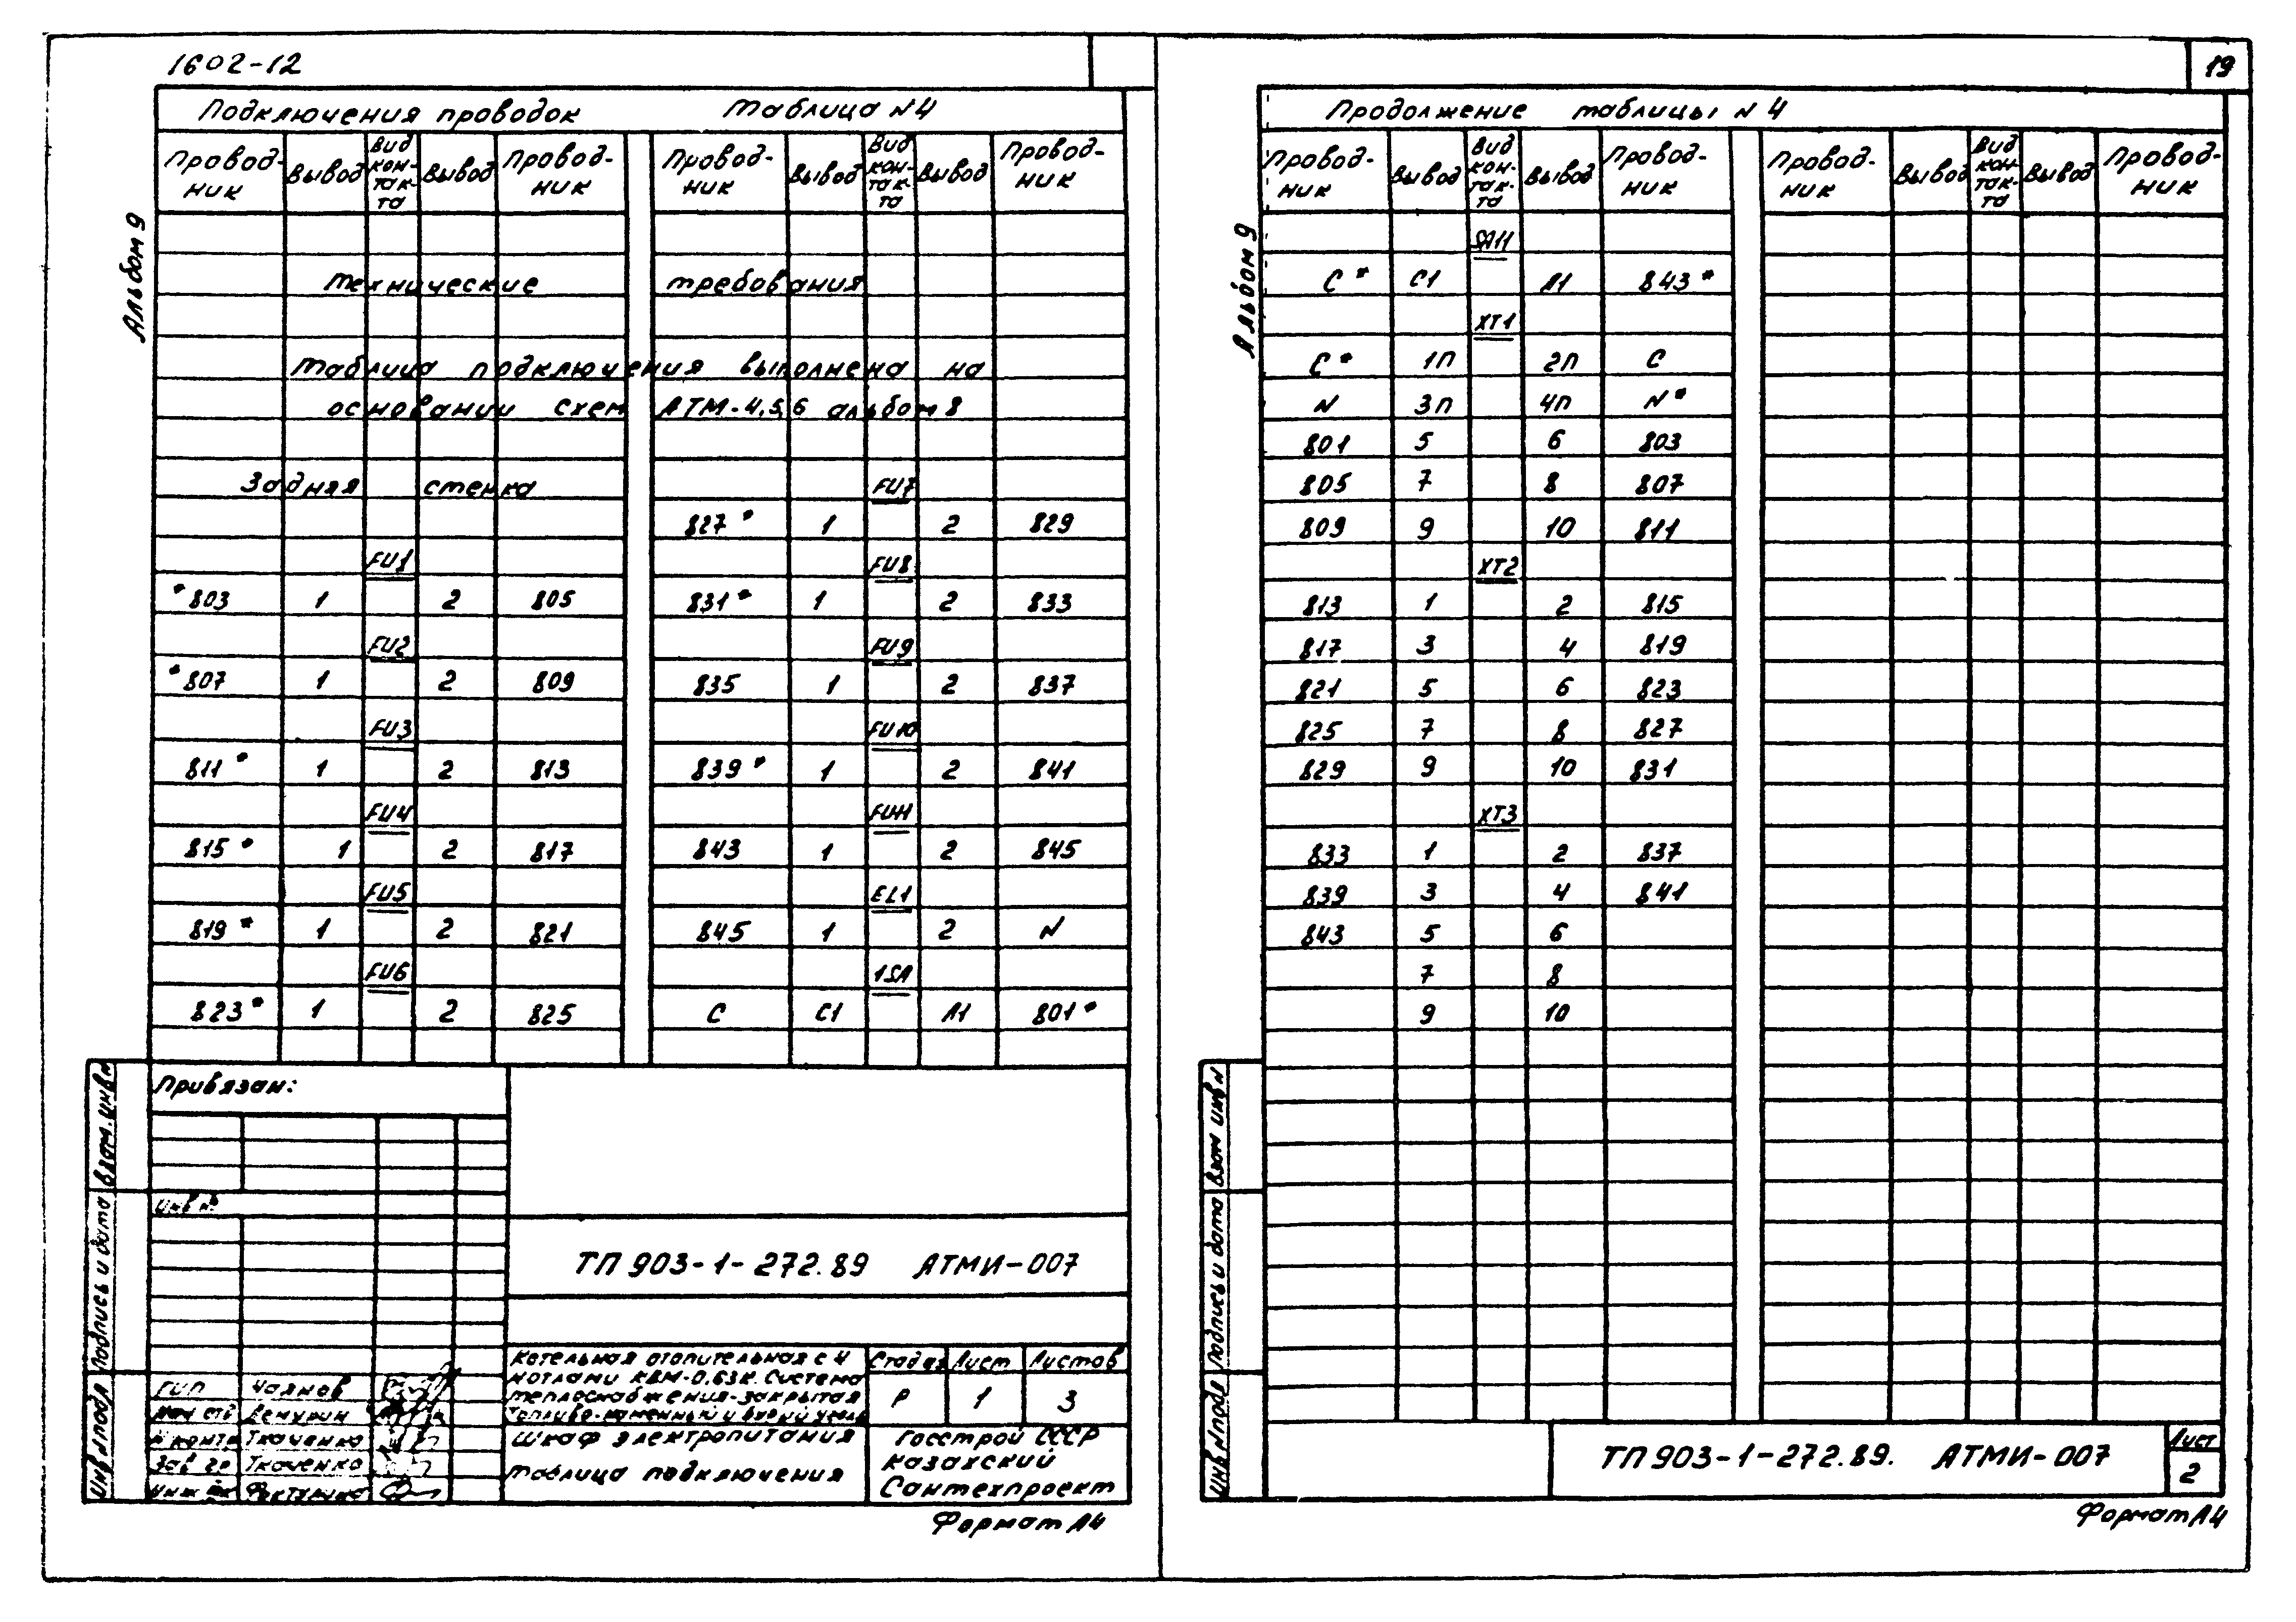 1602-12
Альбом 9
Подключения проводок Таблица N4
Провод-ник Вывод Вид кон-так-та Вывод Провод-ник Провод-ник Вывод Вид кон-так-та Вывод Провод-ник
Технические требования
Таблица подключения выполнена на
основании схем АТМ-4,5,6 альбом 8
Задняя стенка FU7
827* 1 2 829
FU1 FU8
*803 1 2 805 831* 1 2 833
FU2 FU9
*807 1 2 809 835 1 2 837
FU3 FU10
811* 1 2 813 839* 1 2 841
FU4 FU11
815* 1 2 817 843 1 2 845
FU5 EL1
819* 1 2 821 845 1 2 N
FU6 1SA
823* 1 2 825 С С1 Л1 801*
Привязан:
Инв №
ТП 903-1-272.89 АТМИ-007
Котельная отопительная с 4
котлами КВМ-0,63К. Система
теплоснабжения-закрытая
Стадия Лист Листов
Р 1 3
ГИП Чаянов
Нач отд
Н контр Ткаченко
Зав гр Ткаченко
Шкаф электропитания
Таблица подключения
Госстрой СССР
Казахский
Сантехпроект
Инв N подл Подпись и дата Взам. инв N
Формат А4
19
Альбом 9
Продолжение таблицы N 4
Провод-ник Вывод Вид кон-так-та Вывод Провод-ник Провод-ник Вывод Вид кон-так-та Вывод Провод-ник
SA11
С* С1 Л1 843*
XT1
С* 1П 2П С
N 3П 4П N*
801 5 6 803
805 7 8 807
809 9 10 811
XT2
813 1 2 815
817 3 4 819
821 5 6 823
825 7 8 827
829 9 10 831
XT3
833 1 2 837
839 3 4 841
843 5 6
7 8
9 10
Инв N подл Подпись и дата Взам инв N
ТП 903-1-272.89. АТМИ-007
Лист
2
Формат А4